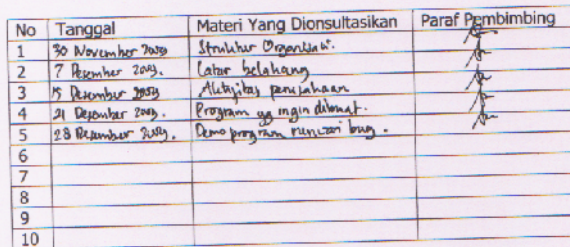 No Tanggal Materi Yang Dionsultasikan Paraf Pembimbing
1 30 November Struktur Organisasi.
2 7 Desember Latar belakang
3 15 Desember Aktifitas perusahaan
4 21 Desember Program yg ingin dibuat.
5 28 Desember Demo program mencari bug.
6
7
8
9
10